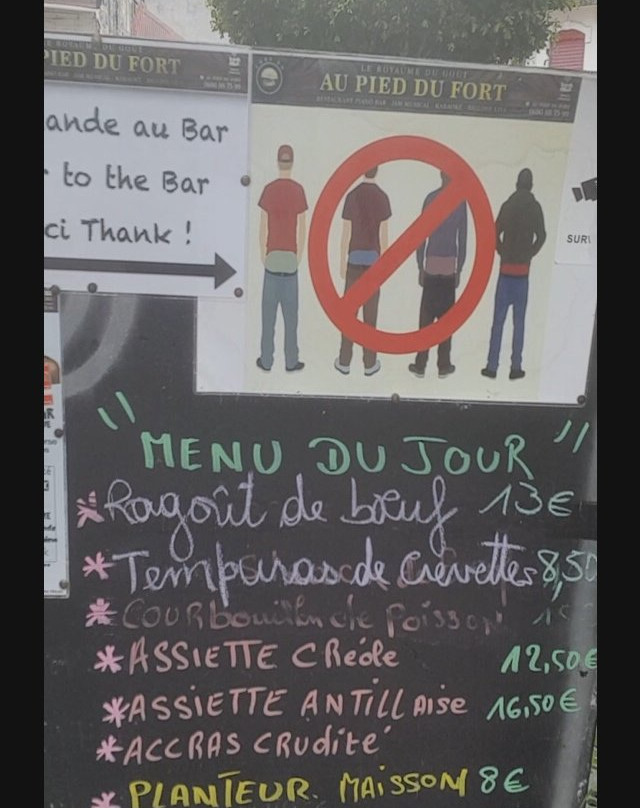 LE ROYAUME DU GOUT
PIED DU FORT
ande au Bar
to the Bar
ci Thank !
LE ROYAUME DU GOUT
AU PIED DU FORT
SUR
" MENU DU JOUR "
* Ragoût de bœuf 13€
* Tempuras de Crevettes 8,50
* COURbouillon de Poisson
* ASSIETTE CRéole 12,50€
* ASSIETTE ANTILLAise 16,50€
* ACCRAS CRUDITé
* PLANTEUR. MAISSON 8€